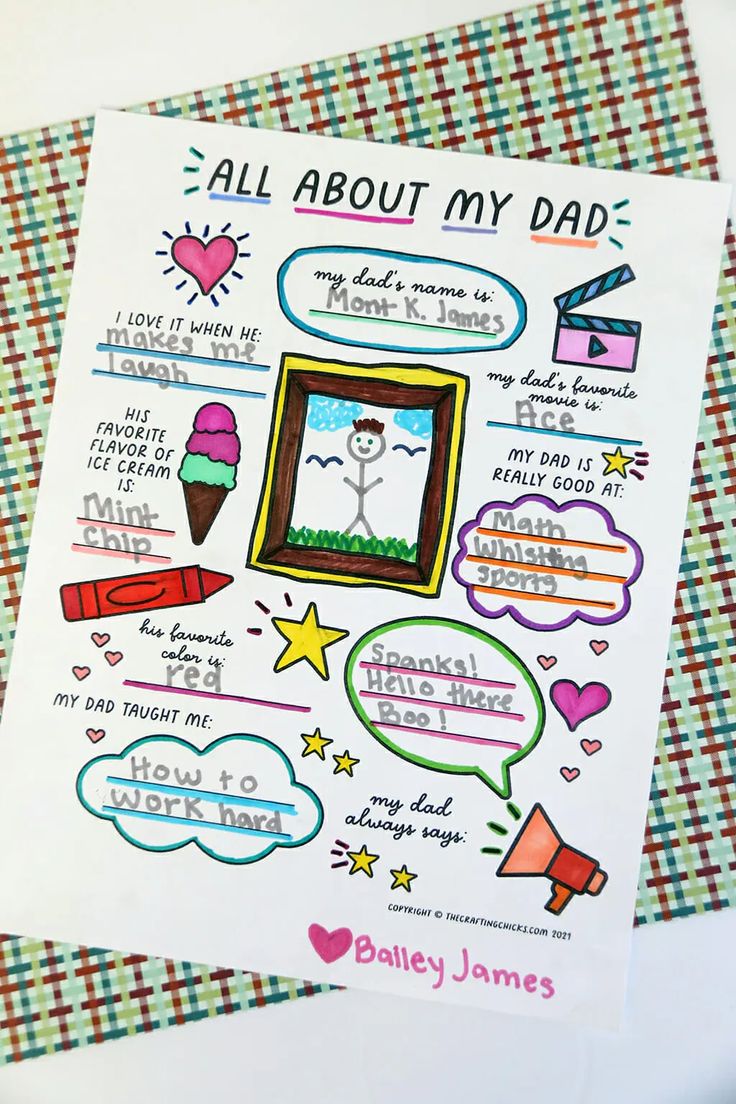 ALL ABOUT MY DAD
my dad's name is:
Mont K. James
I LOVE IT WHEN HE:
makes me
laugh
my dad's favorite
movie is:
Ace
HIS
FAVORITE
FLAVOR OF
ICE CREAM
IS:
Mint
chip
MY DAD IS
REALLY GOOD AT:
Math
Whistling
sports
his favorite
color is:
red
MY DAD TAUGHT ME:
How to
work hard
Spanks!
Hello there
Boo!
my dad
always says:
COPYRIGHT © THECRAFTINGCHICKS.COM 2021
Bailey James